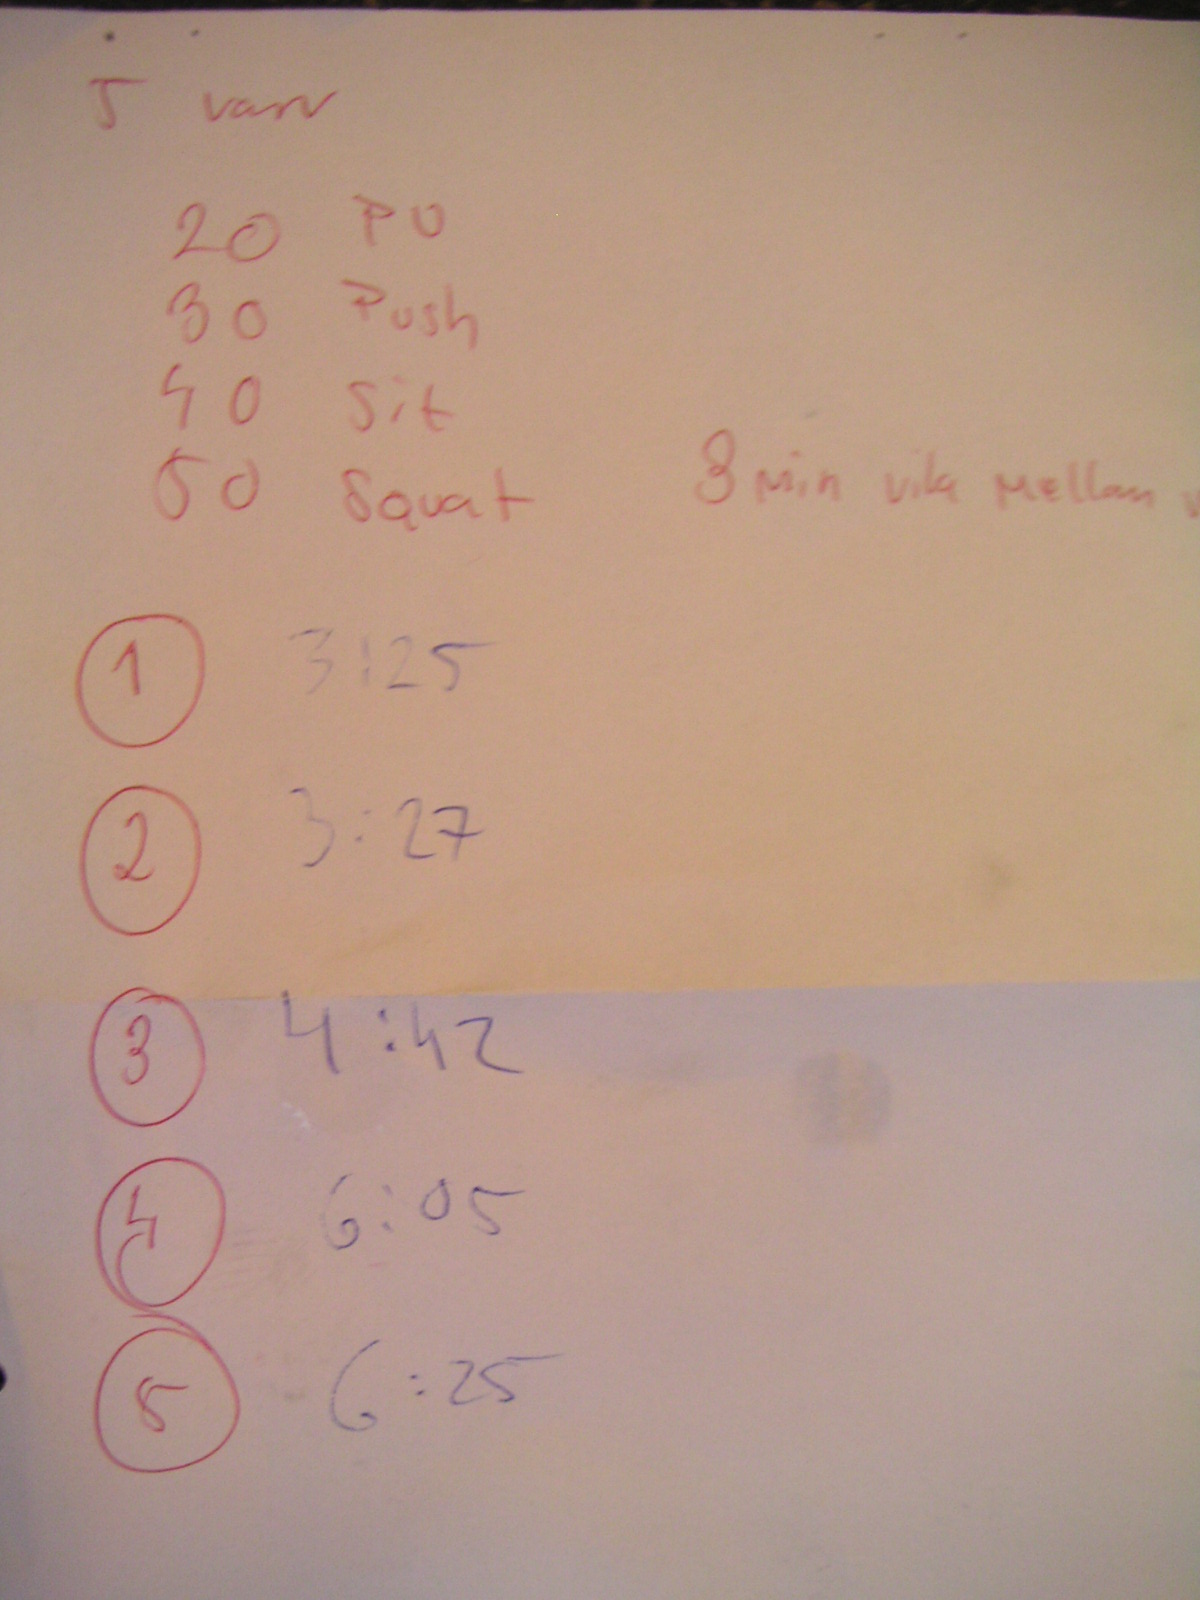 5 varv
20 PU
30 Push
40 Sit
50 Squat 3 min vila mellan
1 3:25
2 3:27
3 4:42
4 6:05
5 6:25